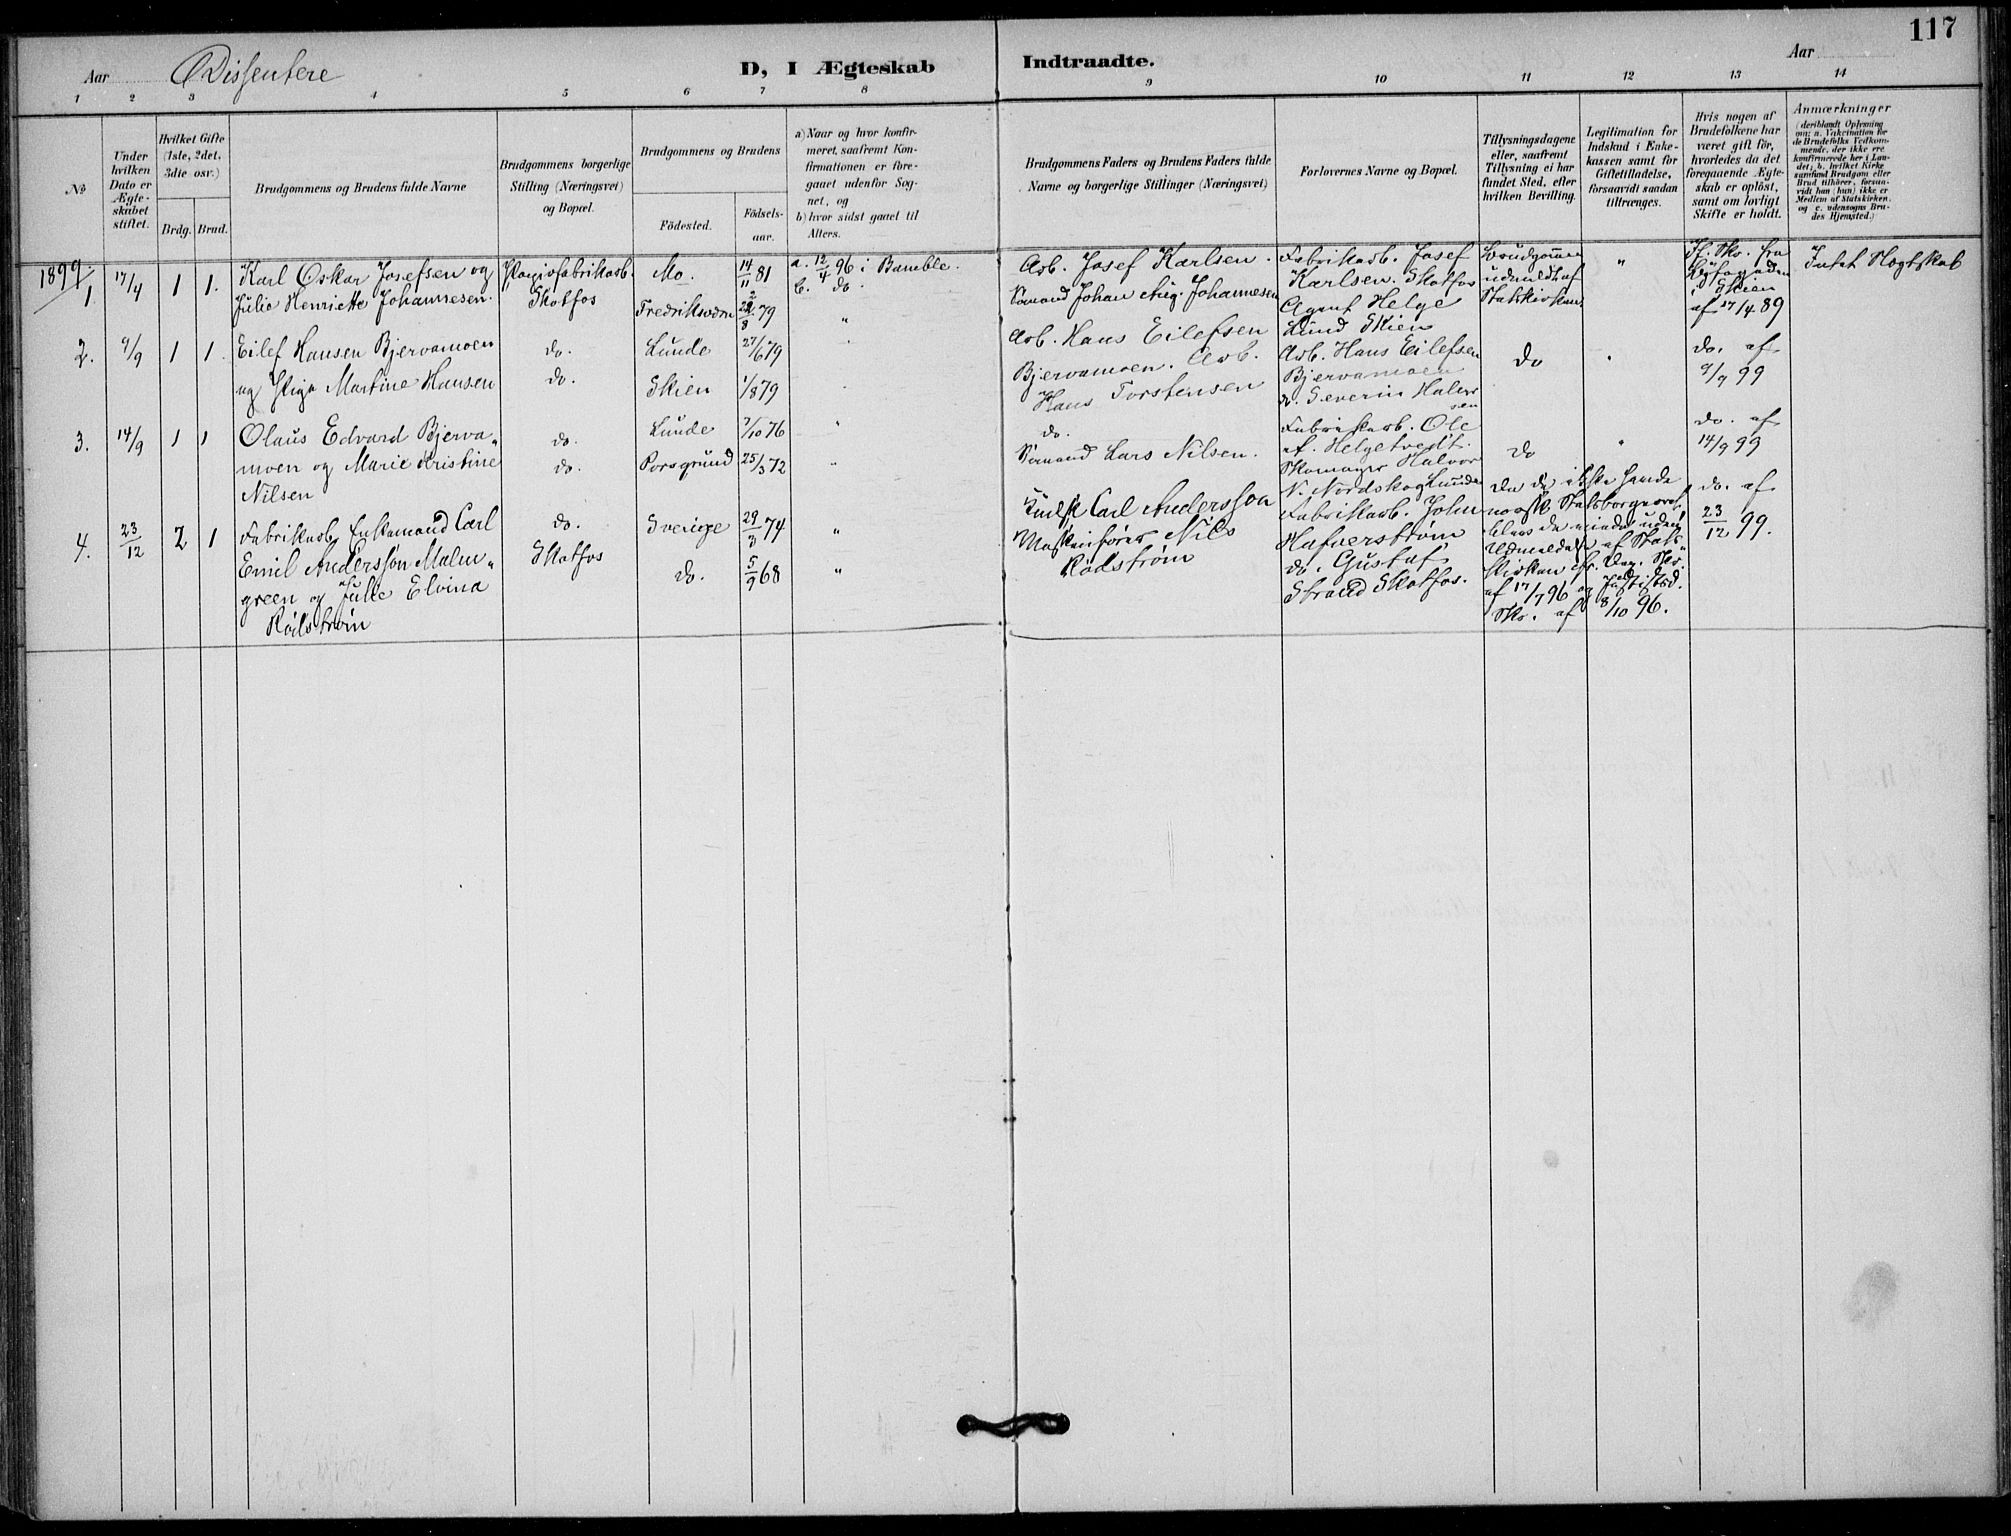 117
Aar
Dissentere
D, I Ægteskab
Indtraadte.
Aar
1 2 3 4 5 6 7 8
9 10 11 12 13 14
№
Under hvilken Dato er Ægteskabet stiftet.
Hvilket Gifte (1ste, 2det, 3die osv.)
Brdg. Brud.
Brudgommens og Brudens fulde Navne
Brudgommens borgerlige Stilling (Næringsvei) og Bopæl.
Brudgommens og Brudens
Födested.
Födsels-aar.
a) Naar og hvor konfirmeret, saafremt Konfirmationen er foregaaet udenfor Sognet, og
b) hvor sidst gaaet til Alters.
Brudgommens Faders og Brudens Faders fulde Navne og borgerlige Stillinger (Næringsvei)
Forlovernes Navne og Bopæl.
Tillysningsdagene eller, saafremt Tillysning ei har fundet Sted, efter hvilken Bevilling.
Legitimation for Indskud i Enkekassen samt for Giftetilladelse, forsaavidt saadan tiltrænges.
Hvis nogen af Brudefolkene har været gift för, hvorledes da det foregaaende Ægteskab er oplöst, samt om lovligt Skifte er holdt.
Anmærkninger
(deriblandt Oplysning om: a. Vakcination for de Brudefolks Vedkommende, der ikke ere konfirmerede her i Landet; b. hvilket Kirkesamfund Brudgom eller Brud tilhörer, forsaavidt han (hun) ikke er Medlem af Statskirken, og c. udensogns Brudes Hjemsted.)
1899
1. 17/4 1 1.
Karl Oskar Josefsen og
Julie Henriette Johannesen.
Skotfos
Mo. 14/11 81
Fredriksværn 22/8 79
a. 12/4 96 i Bamble.
b. do. "
Arb. Josef Karlsen.
Sömand Johan Aug. Johannesen
Fabrikarb. Josef
Karlsen. Skotfos
Agent Helge
Lund Skien
Brudgommen
udmeldt af
Statskirken
"
Sko. fra
Skien
af 17/4 89
Intet Slegtskab
2. 9/9 1 1.
Eilef Hansen Bjervamoen
og Pige Martine Hansen
do.
do.
Lunde 27/6 79
Skien 1/8 79
Arb. Hans Eilefsen
Bjervamoen. Arb.
Hans Torstensen
Arb. Hans Eilefsen
Bjervamoen
do. Severin Halvorsen
do
"
do. af
9/9 99
3. 14/9 1 1
Olaus Edvard Bjerva-
moen og Marie Kristine
Nilsen
do.
do.
Lunde 7/10 76
Porsgrund 25/3 72
"
"
do.
Sömand Lars Nilsen.
Fabrikarb. Ole
Helgetvedt.
Skomager Halvor
N. Nordskog Lunde
do
"
do. af
14/9 99
4. 23/12 2 1
Fabrikarb. Enkemand Carl
Emil Andersson Malm-
green og Julie Elvina
Rödström
do.
Skotfos
Sverige 29/3 74
do. 5/9 68
"
"
Carl Andersson
Maskinförer Nils
Rödström
Fabrikarb. John
Hafnerström
do. Gustaf
Strand Skotfos.
Da de ikke havde
norsk Statsborgerret,
blev de viede uden
Udmeldelse af Stats-
kirken cfr. Dep. Skr.
af 17/7 96 og Justitsd.
Skr. af 8/10 96.
do. af
23/12 99.